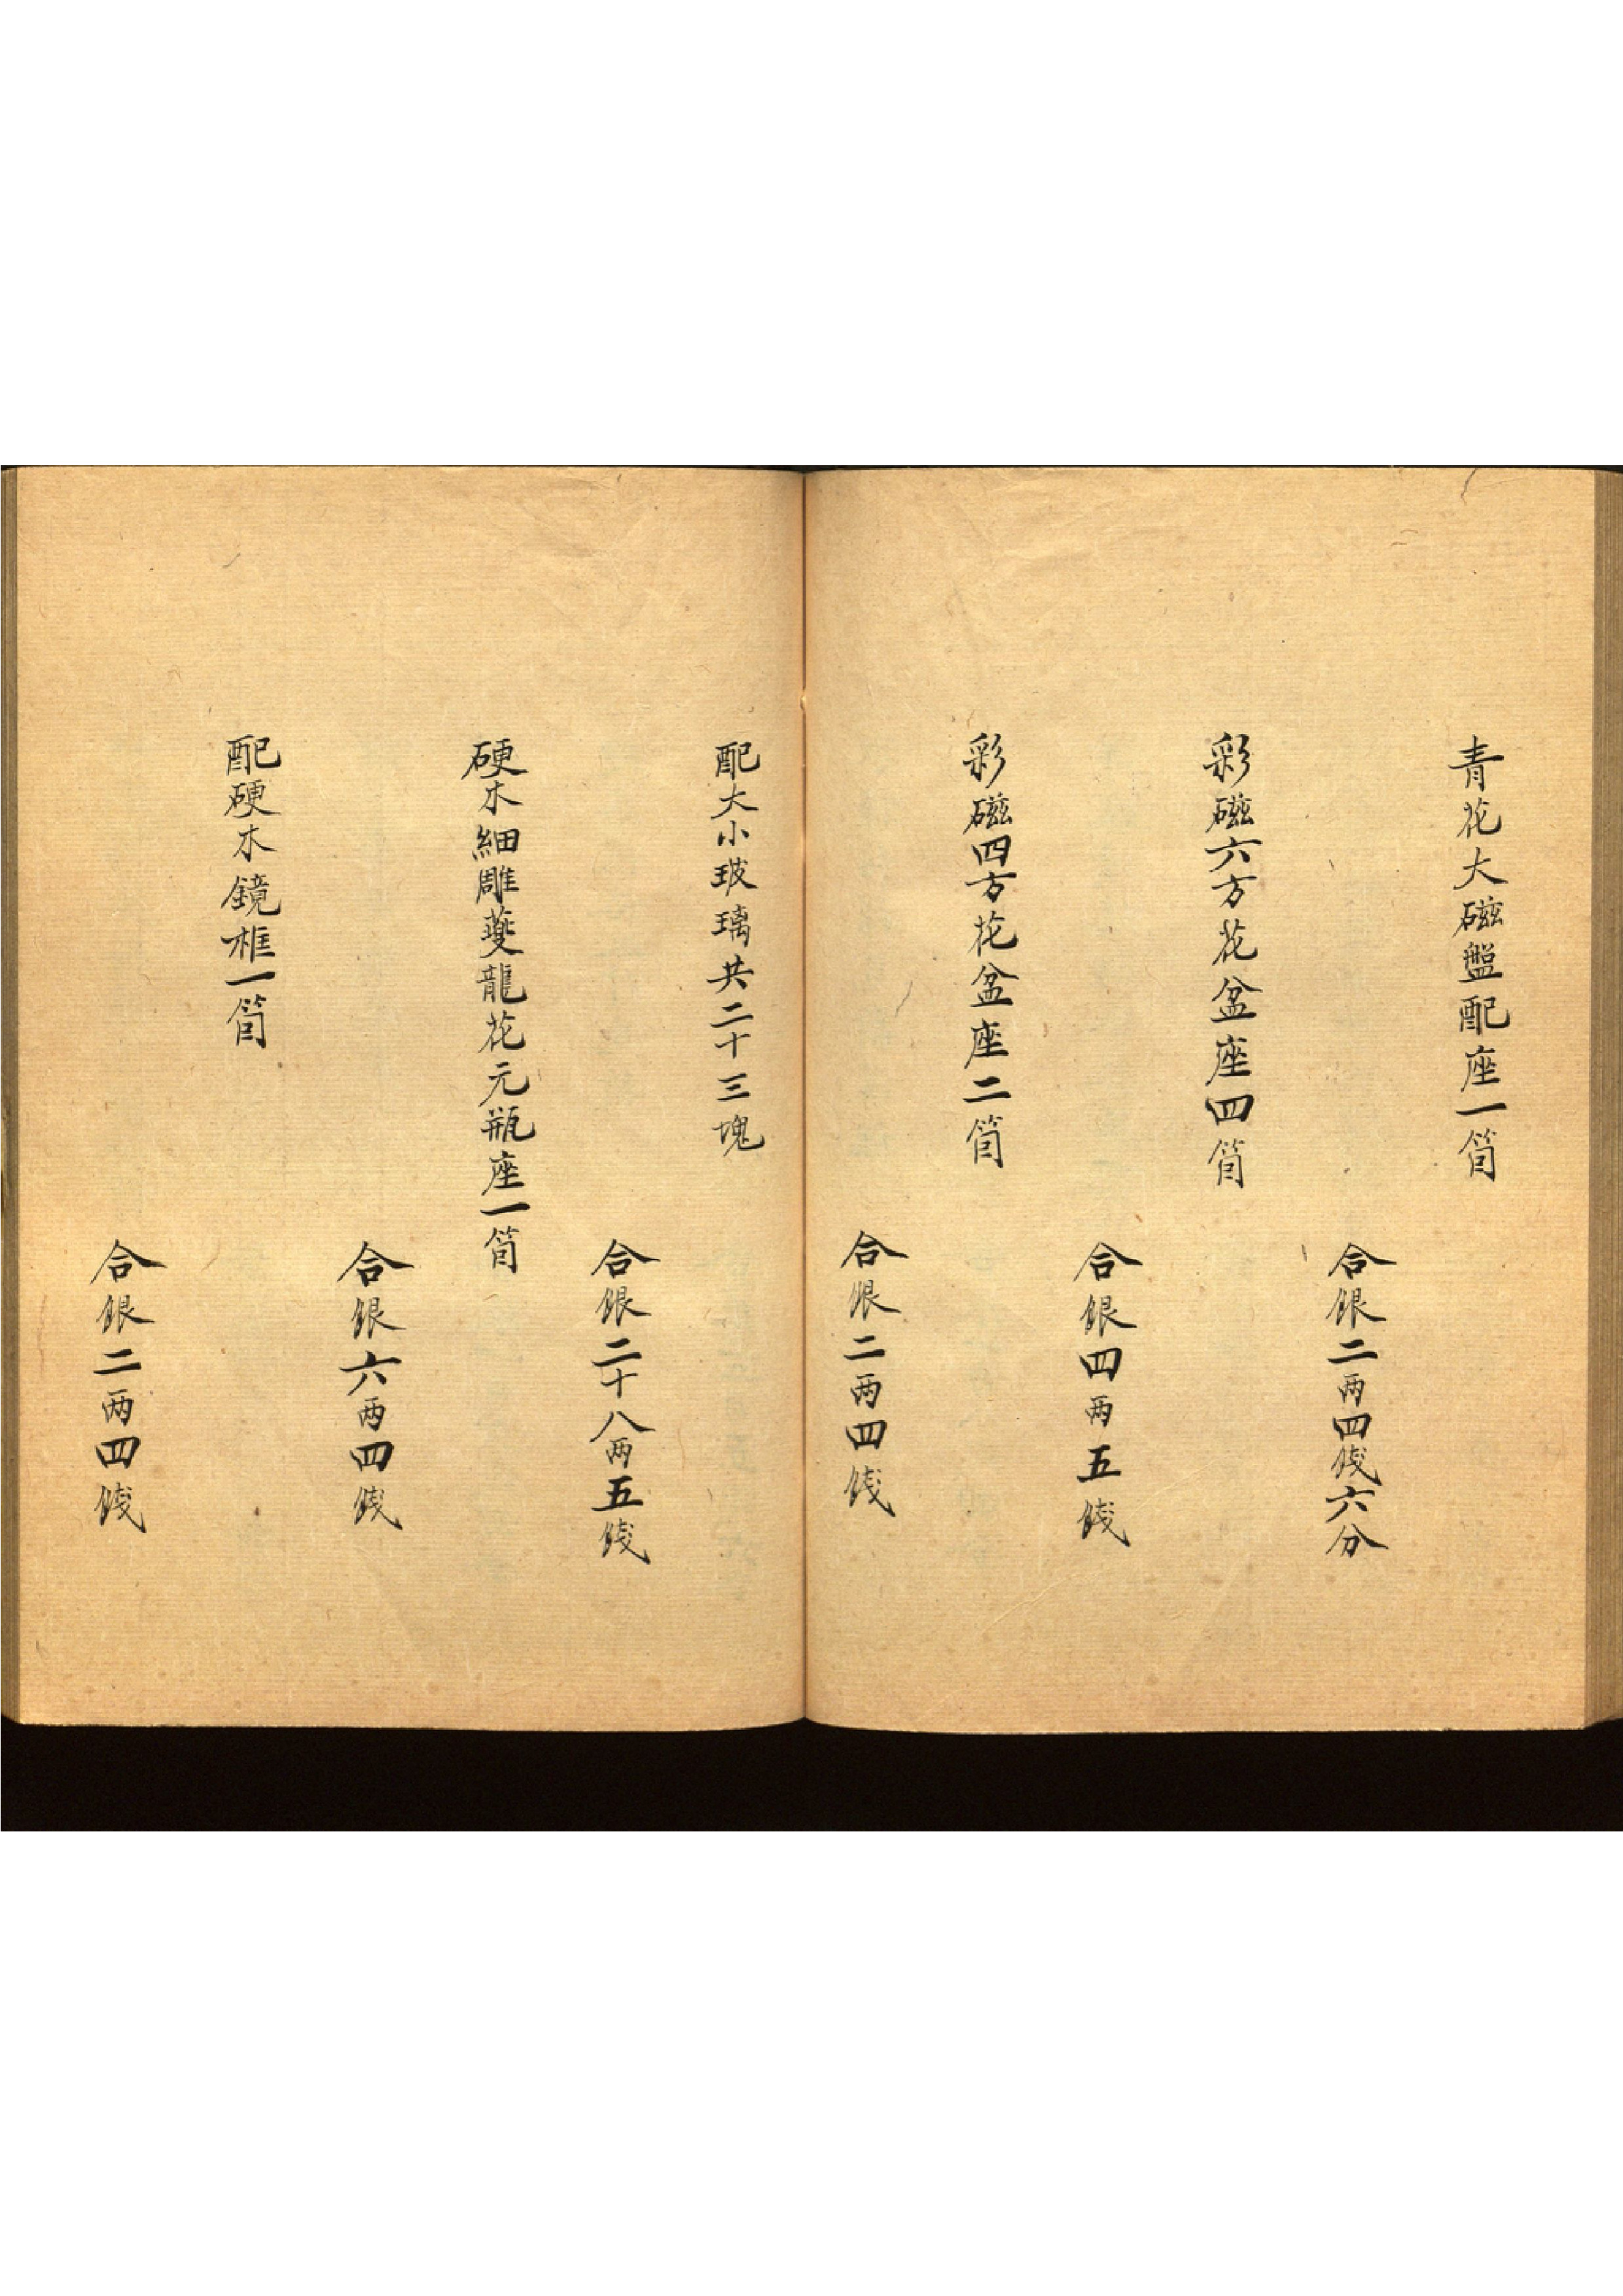 青花大磁盤配座一箇
合銀二两四錢六分
彩磁六方花盆座四箇
合銀四两五錢
彩磁四方花盆座二箇
合銀二两四錢
配大小玻璃共二十三塊
合銀二十八两五錢
硬木細雕夔龍花元瓶座一箇
合銀六两四錢
配硬木鏡框一箇
合銀二两四錢